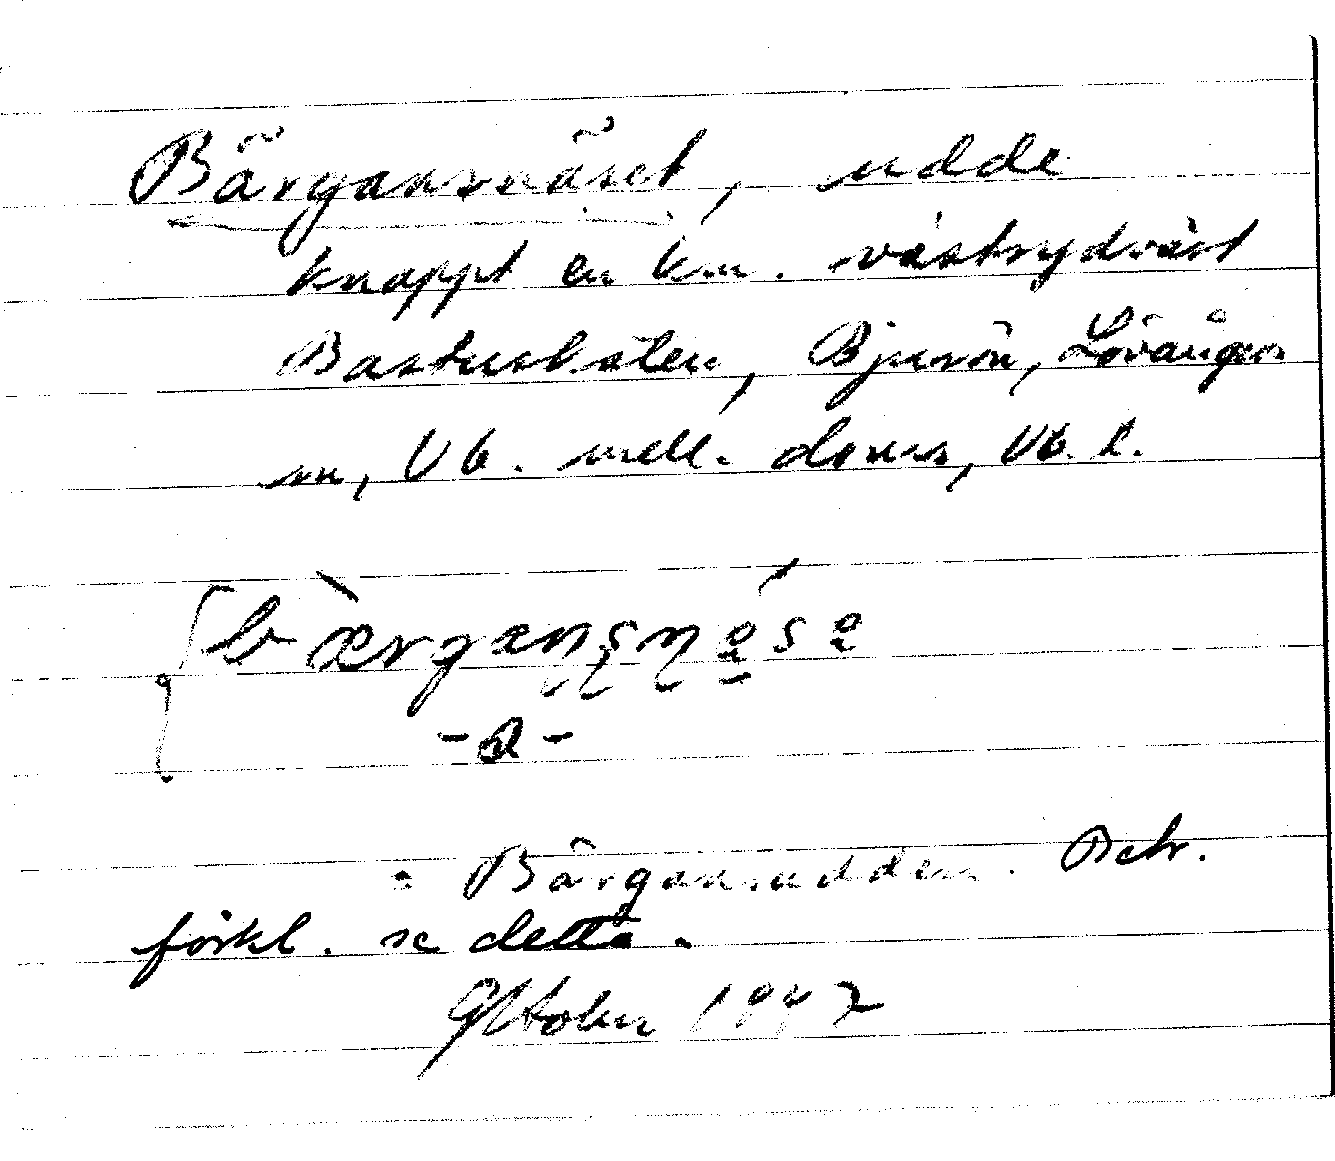 Bärgansnäset, udde
knappt en km. västsydväst
Bastuskäten, Bjurön, Lövångers
sn, Vb. mell. doms, Vb. l.
bærgansnäse
-a-
= Bärgansudden. Betr.
förkl. se detta.
Oktober 1947